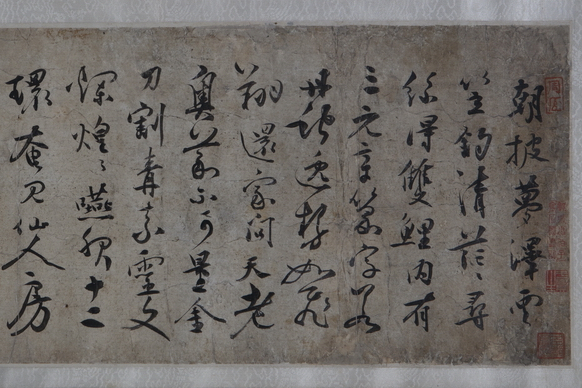 朝披夢澤雲
笠釣清茫々尋
絲得雙鯉內有
三元章篆字若
丹蛇逸勢如飛
翔還家問天老
奧義不可量金
刀割青素靈文
爛煌々嚥服十二
環奄見仙人房